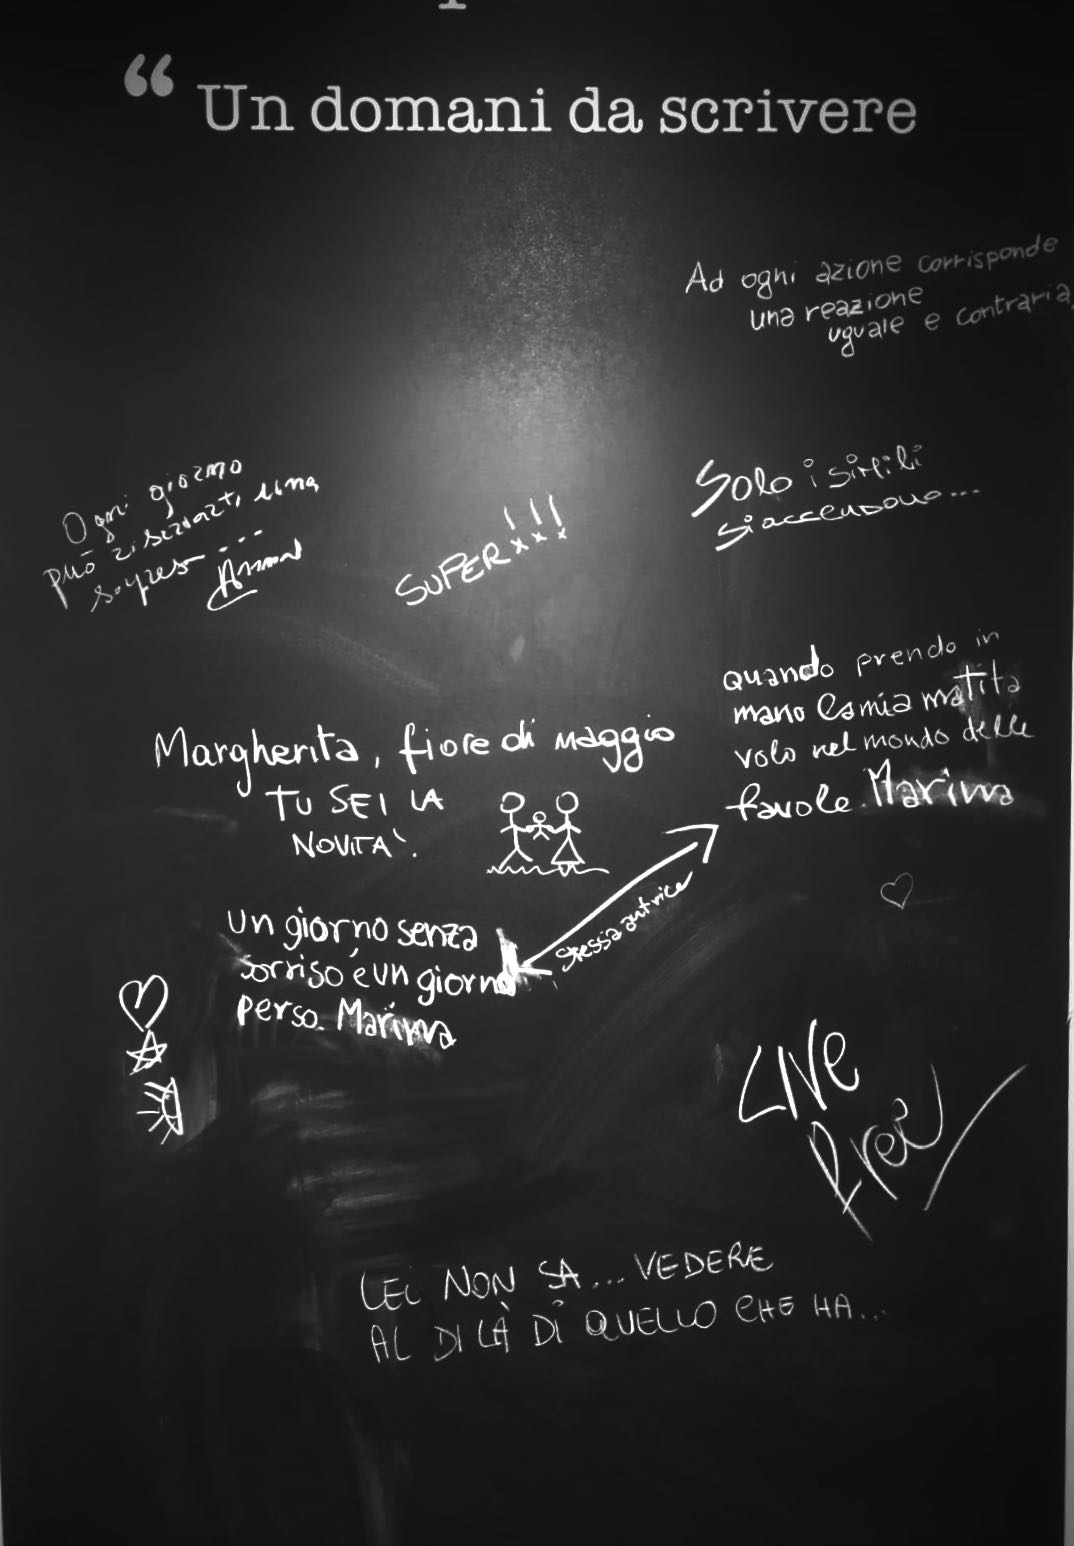 “ Un domani da scrivere
Ad ogni azione corrisponde
una reazione
uguale e contraria
Ogni giorno
può riservarti una
sorpresa...
SUPER!!!
Solo i simili
si accendono...
quando prendo in
mano la mia matita
volo nel mondo delle
favole. Marina
Margherita, fiore di maggio
TU SEI LA
NOVITA'.
stessa autrice
un giorno senza
sorriso é un giorno
perso. Marina
LIVE
Free
LEI NON SA... VEDERE
AL DI LÀ DI QUELLO CHE HA...